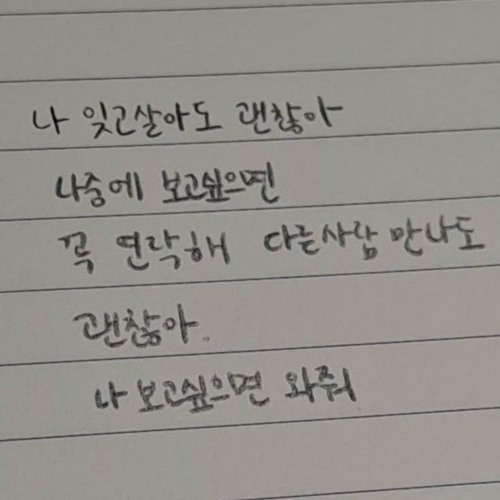 나 잊고살아도 괜찮아
나중에 보고싶으면
꼭 연락해 다른사람 만나도
괜찮아.
나 보고싶으면 와줘